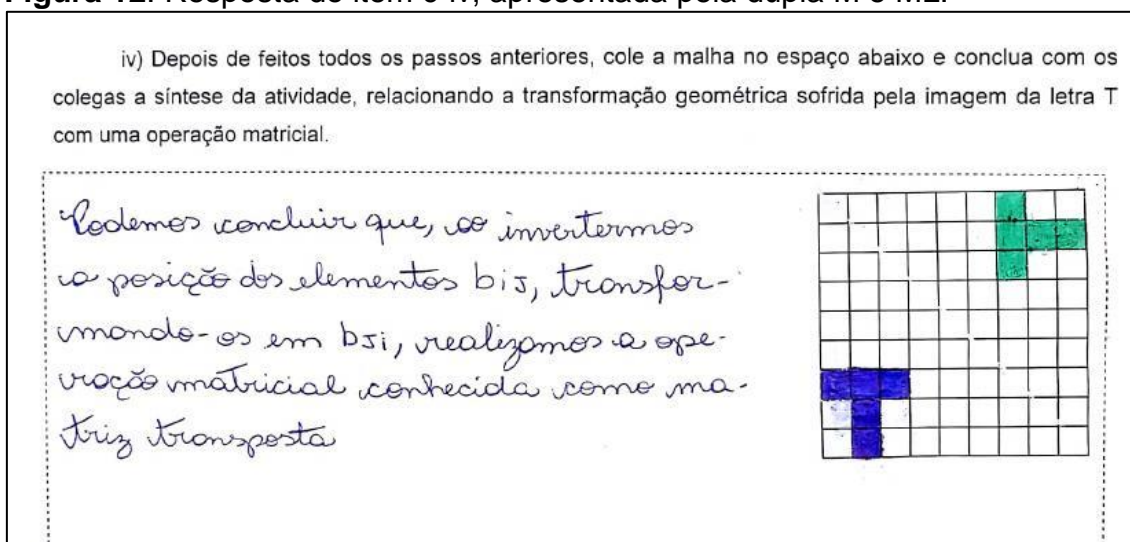 Figura 12: Resposta do item c iv, apresentada pela dupla M e M2.
iv) Depois de feitos todos os passos anteriores, cole a malha no espaço abaixo e conclua com os
colegas a síntese da atividade, relacionando a transformação geométrica sofrida pela imagem da letra T
com uma operação matricial.
Podemos concluir que, ao invertermos
a posição dos elementos bij, transfor-
mando-os em bji, realizamos a ope-
ração matricial conhecida como ma-
triz transposta